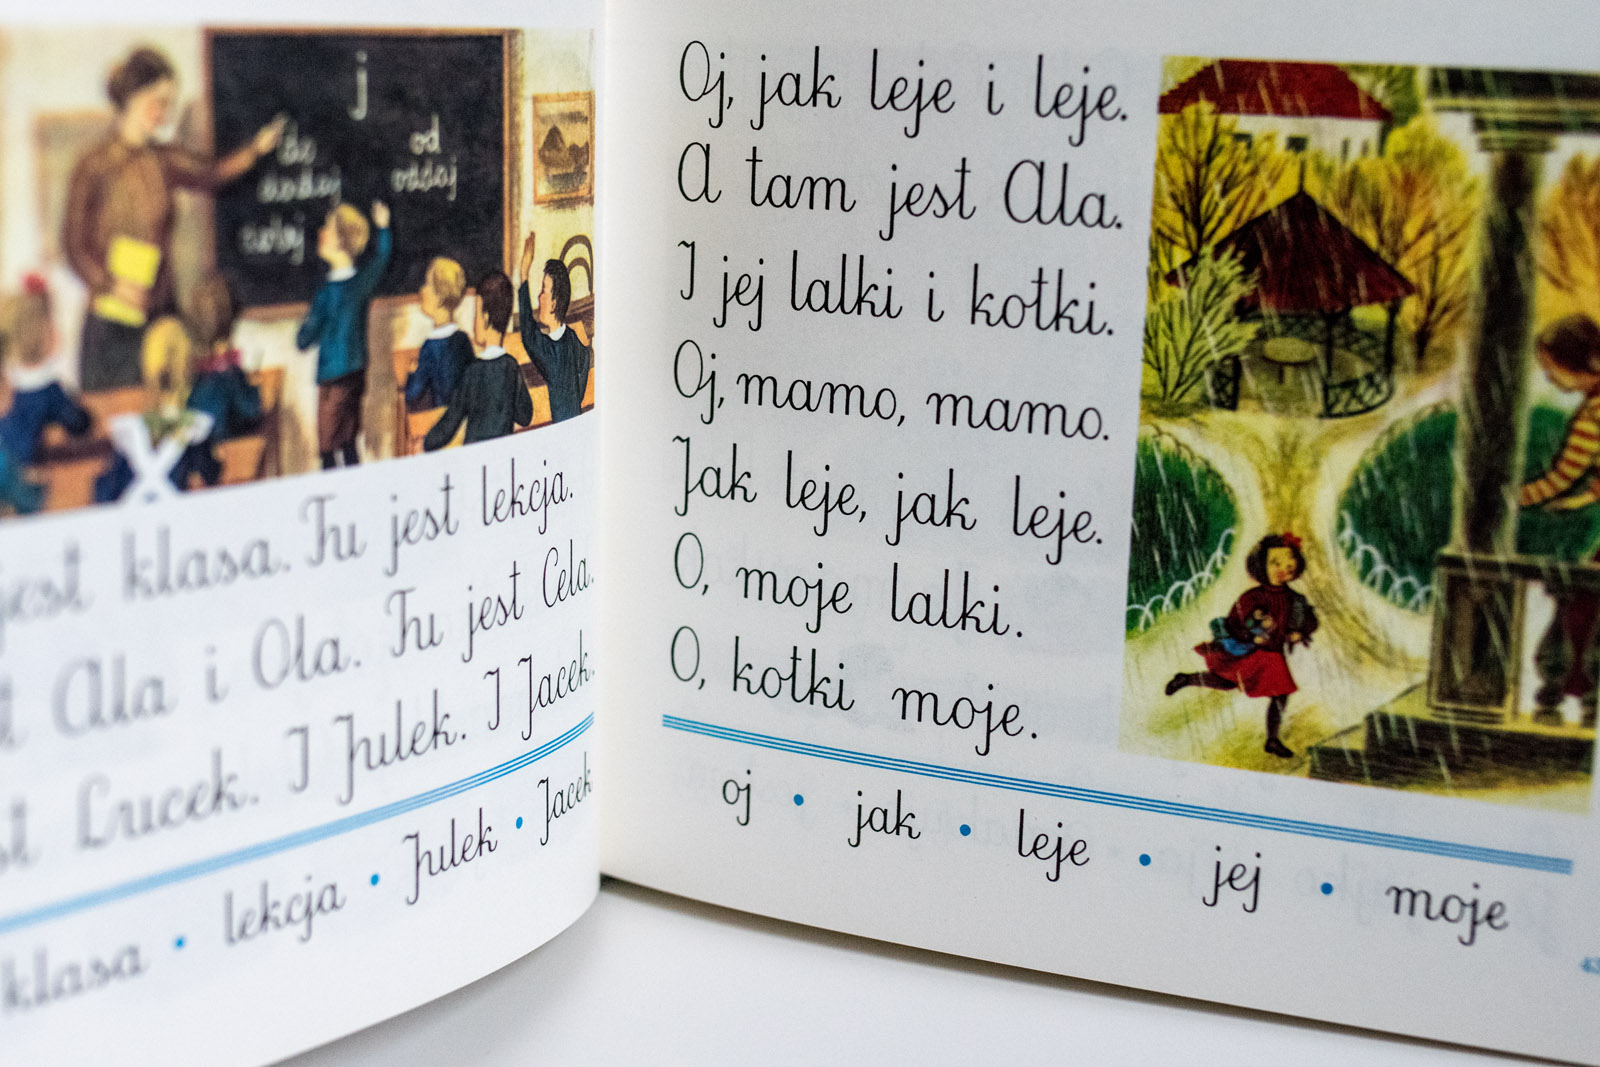 j
do od
dodaj oddaj
jest klasa. Tu jest lekcja.
Ala i Ola. Tu jest Cela.
Lucek. I Julek. I Jacek.
klasa • lekcja • Julek • Jacek
Oj, jak leje i leje.
A tam jest Ala.
I jej lalki i kotki.
Oj, mamo, mamo.
Jak leje, jak leje.
O, moje lalki.
O, kotki moje.
oj • jak • leje • jej • moje